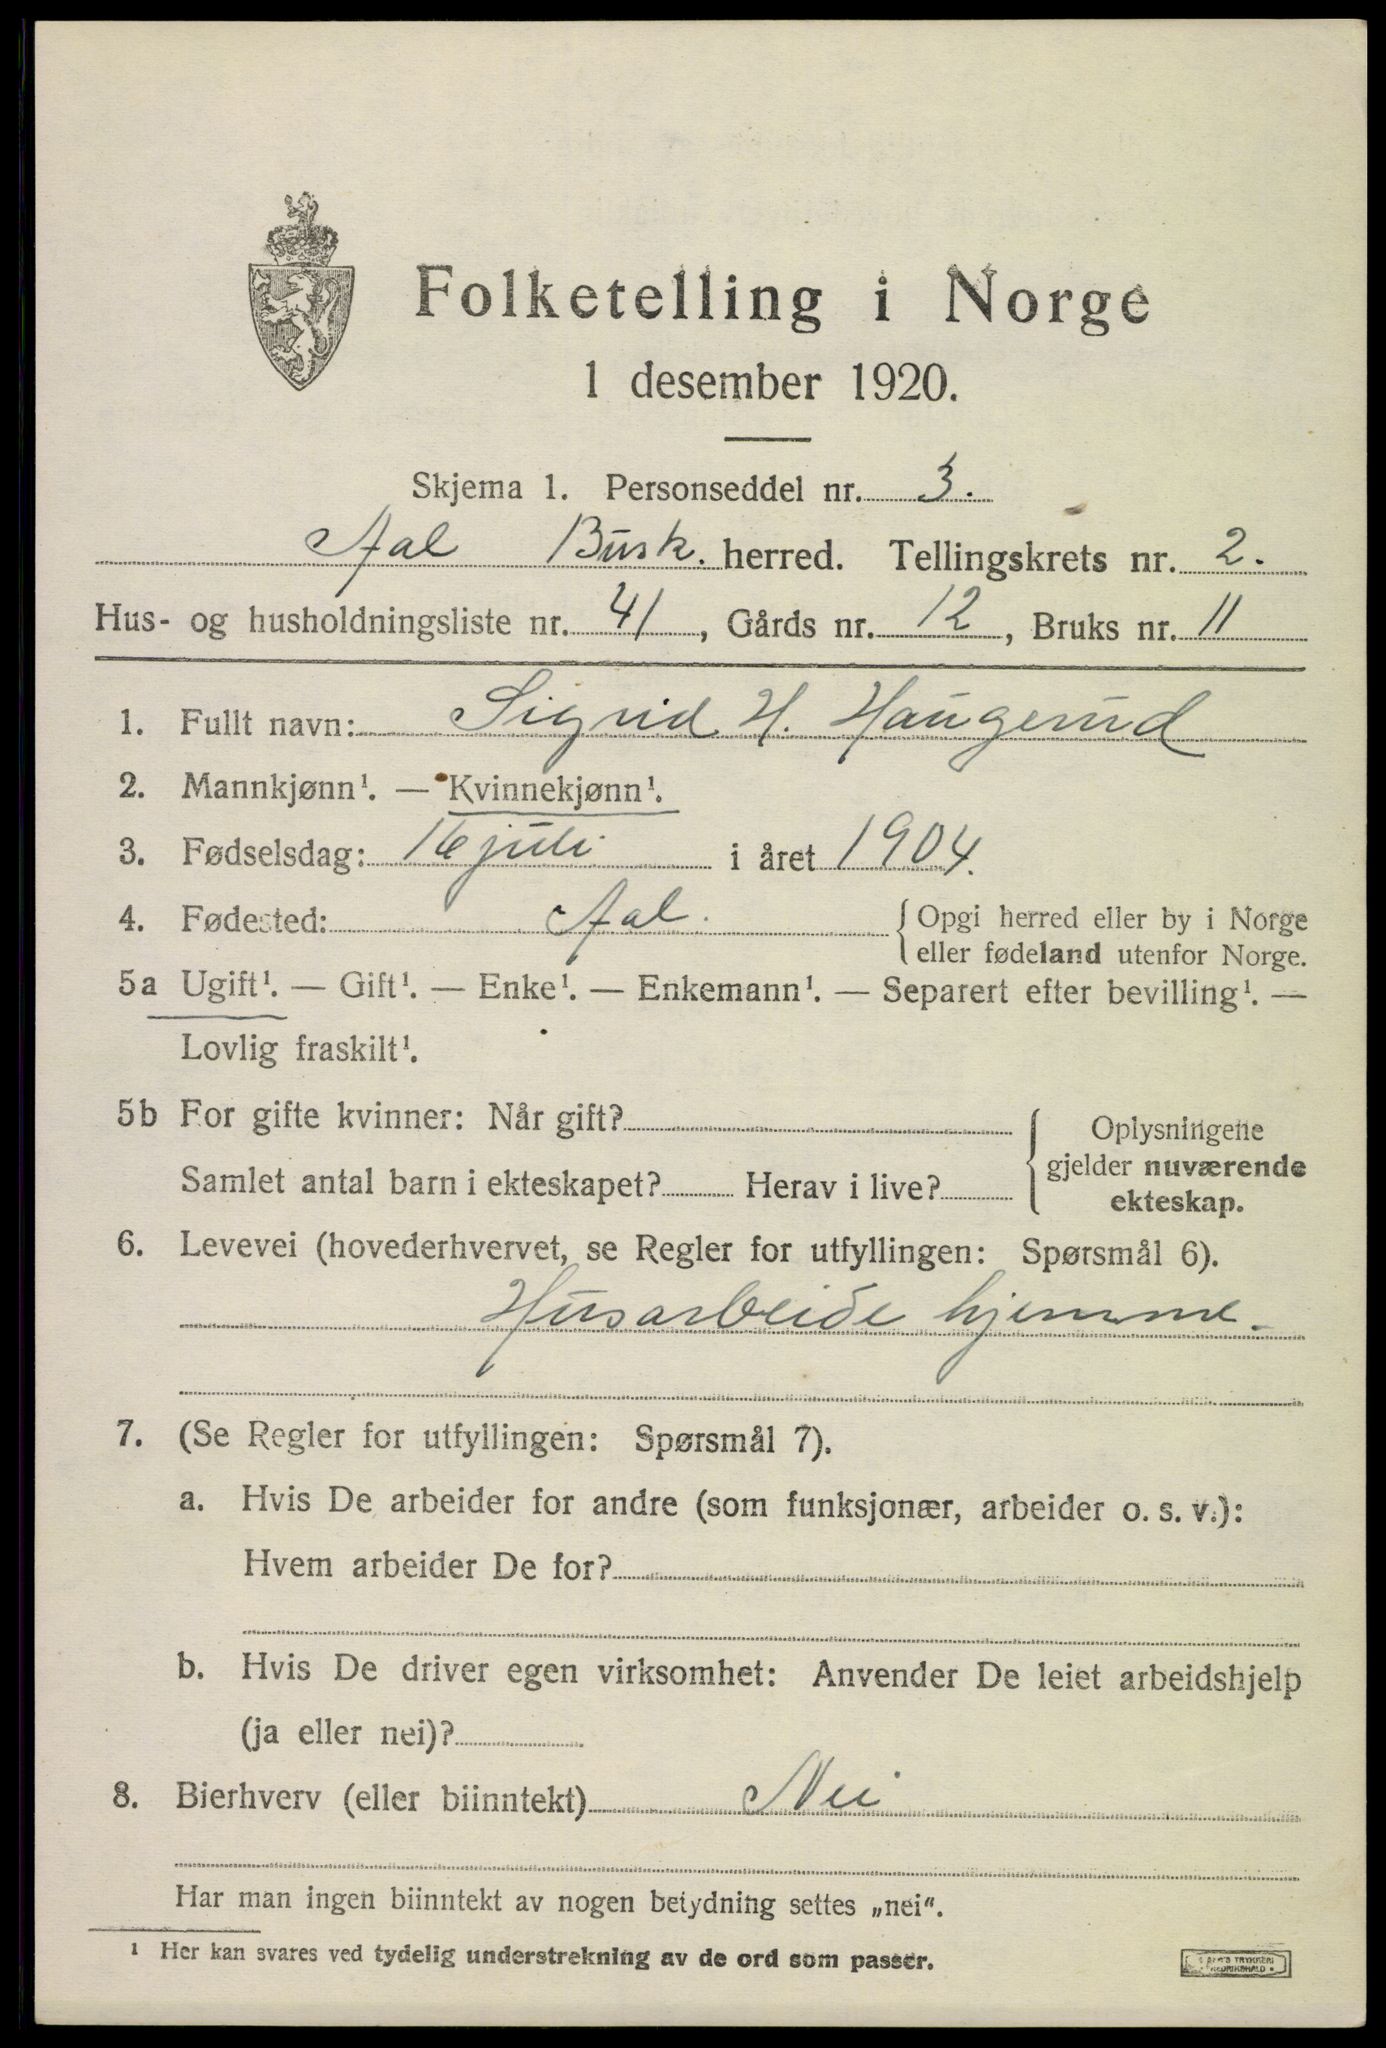 Folketelling i Norge
1 desember 1920.
Skjema 1. Personseddel nr. 3.
Aal Busk. herred. Tellingskrets nr. 2.
Hus- og husholdningsliste nr. 41, Gårds nr. 12, Bruks nr. 11
1. Fullt navn: Sigrid H. Haugerud
2. Mannkjønn¹. — Kvinnekjønn¹.
3. Fødselsdag: 16 juli i året 1904.
4. Fødested: Aal. { Opgi herred eller by i Norge
eller fødeland utenfor Norge.
5a Ugift¹. — Gift¹. — Enke¹. — Enkemann¹. — Separert efter bevilling¹. —
Lovlig fraskilt¹.
5b For gifte kvinner: Når gift?
Samlet antal barn i ekteskapet? Herav i live?
{ Oplysningene
gjelder nuværende
ekteskap.
6. Levevei (hovederhvervet, se Regler for utfyllingen: Spørsmål 6).
Husarbeide hjemme.
7. (Se Regler for utfyllingen: Spørsmål 7).
a. Hvis De arbeider for andre (som funksjonær, arbeider o. s. v.):
Hvem arbeider De for?
b. Hvis De driver egen virksomhet: Anvender De leiet arbeidshjelp
(ja eller nei)?
8. Bierhverv (eller biinntekt) Nei
Har man ingen biinntekt av nogen betydning settes „nei“.
¹ Her kan svares ved tydelig understrekning av de ord som passer.
TRYKKERI
FREDRIKSHALD